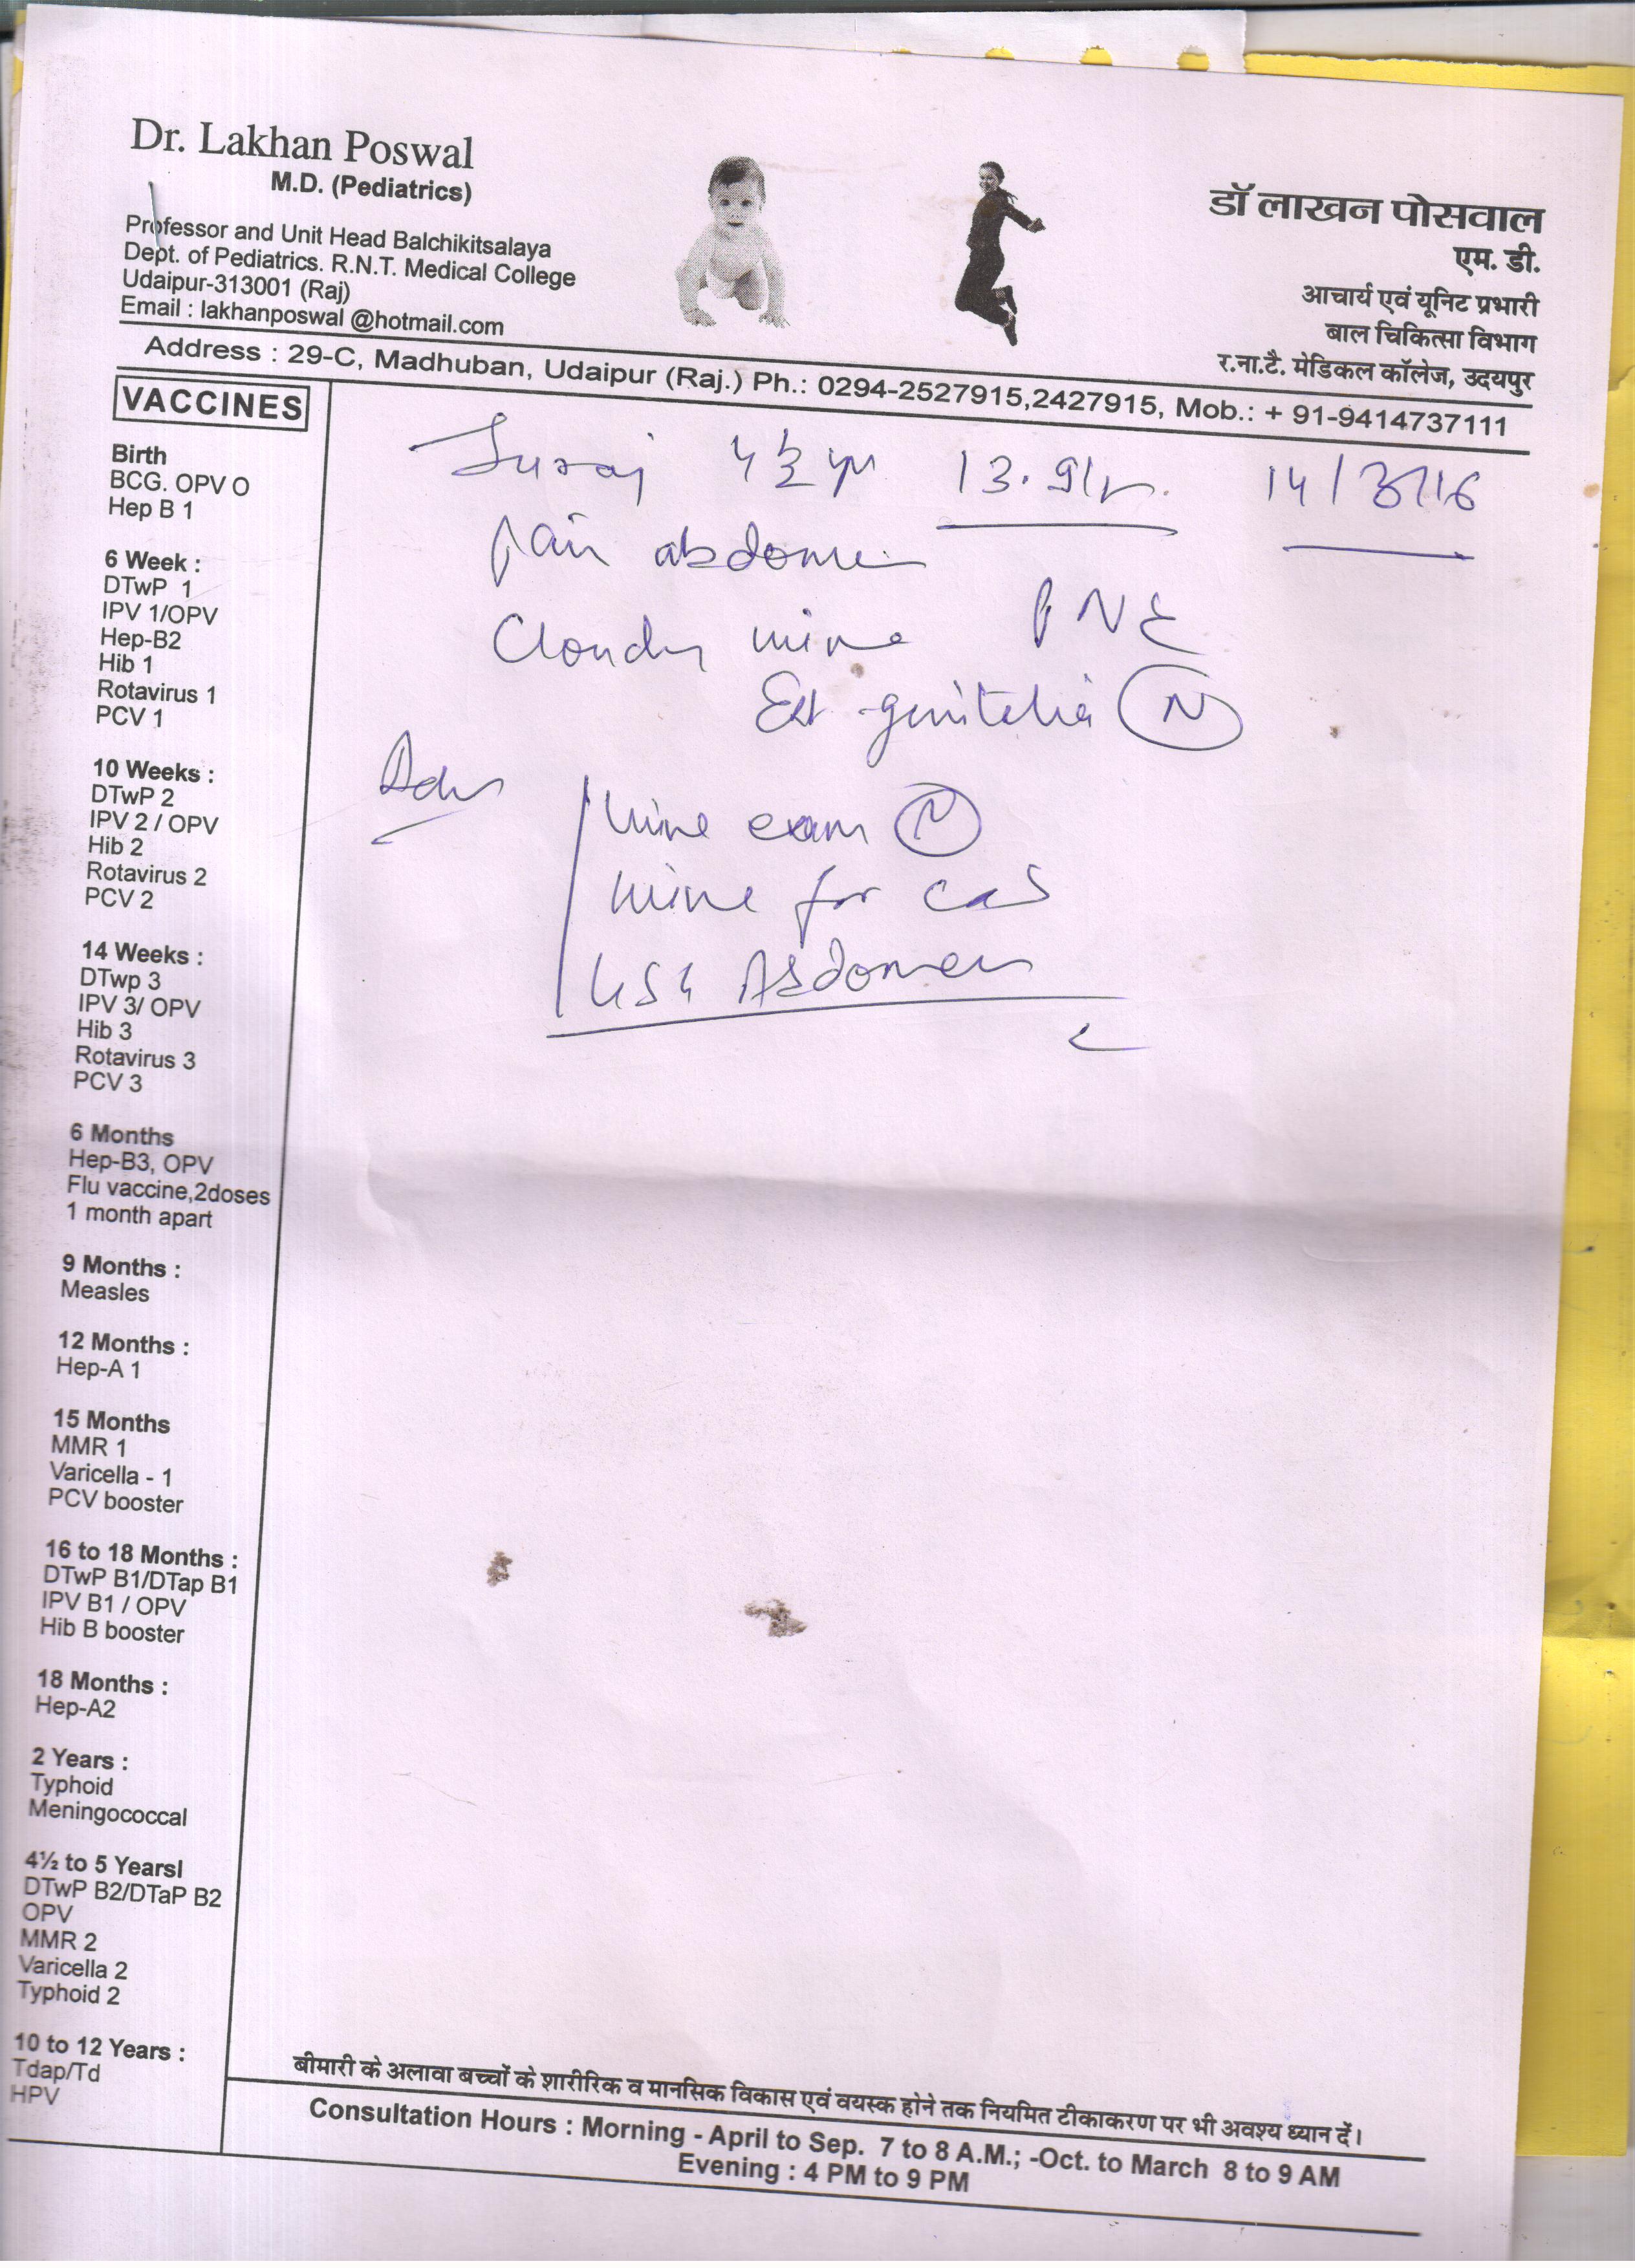 Dr. Lakhan Poswal
M.D. (Pediatrics)
Professor and Unit Head Balchikitsalaya
Dept. of Pediatrics. R.N.T. Medical College
Udaipur-313001 (Raj)
Email : lakhanposwal @hotmail.com
डॉ लाखन पोसवाल
एम. डी.
आचार्य एवं यूनिट प्रभारी
बाल चिकित्सा विभाग
र.ना.टै. मेडिकल कॉलेज, उदयपुर
Address : 29-C, Madhuban, Udaipur (Raj.) Ph.: 0294-2527915,2427915, Mob.: + 91-9414737111
VACCINES
Birth
BCG. OPV O
Hep B 1
6 Week :
DTwP 1
IPV 1/OPV
Hep-B2
Hib 1
Rotavirus 1
PCV 1
10 Weeks :
DTwP 2
IPV 2 / OPV
Hib 2
Rotavirus 2
PCV 2
14 Weeks :
DTwp 3
IPV 3/ OPV
Hib 3
Rotavirus 3
PCV 3
6 Months
Hep-B3, OPV
Flu vaccine,2doses
1 month apart
9 Months :
Measles
12 Months :
Hep-A 1
15 Months
MMR 1
Varicella - 1
PCV booster
16 to 18 Months :
DTwP B1/DTap B1
IPV B1 / OPV
Hib B booster
18 Months :
Hep-A2
2 Years :
Typhoid
Meningococcal
4½ to 5 Yearsl
DTwP B2/DTaP B2
OPV
MMR 2
Varicella 2
Typhoid 2
10 to 12 Years :
Tdap/Td
HPV
Suraj 14/3/16
pain abdomen
Cloudy urine
Ext genitelia N
Adv
urine exam
urine for c&S
USG Abdomen
बीमारी के अलावा बच्चों के शारीरिक व मानसिक विकास एवं वयस्क होने तक नियमित टीकाकरण पर भी अवश्य ध्यान दें।
Consultation Hours : Morning - April to Sep. 7 to 8 A.M.; -Oct. to March 8 to 9 AM
Evening : 4 PM to 9 PM